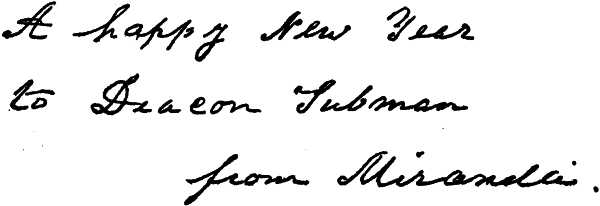 A happy New Year
to Deacon Tubman
from Miranda.